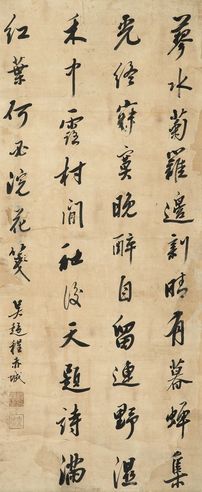 蓼水菊籬邊新晴有暮蟬
光終寂寞晚醉自留連野濕
禾中露村閒社後天題詩滿
紅葉何必浣花箋
吳趨程赤城